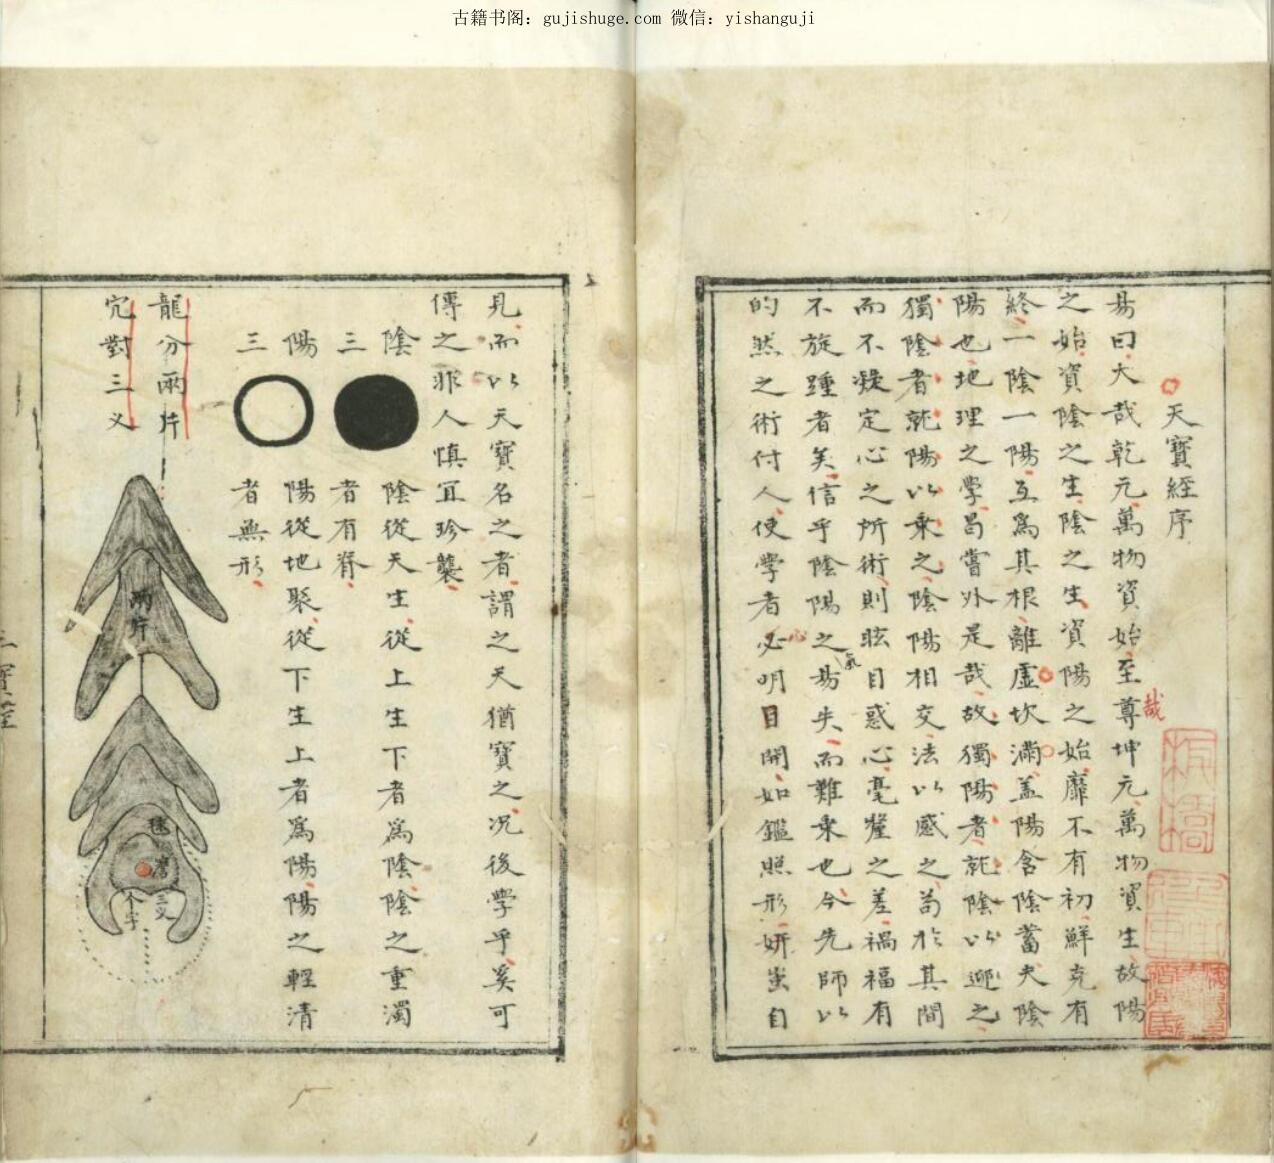 古籍书阁：gujishuge.com 微信：yishanguji
天寶經序
易曰大哉乾元萬物資始至尊坤元萬物資生故陽
哉
之始資陰之生陰之生資陽之始靡不有初鮮克有
終一陰一陽互爲其根離虛坎滿盖陽含陰蓄夫陰
陽也地理之學曷嘗外是哉故獨陽者就陰以迎之
獨陰者就陽以乘之陰陽相交法以感之苟於其間
而不凝定心之所術則眩目惑心毫釐之差禍福有
不旋踵者矣信乎陰陽之氣易失而難乘也今先師以
的然之術付人使學者必心明目開如鑑照形妍蚩自
見而以天寶名之者謂之天猶寶之况後學乎奚可
傳之非人慎宜珍襲
陰 陰從天生從上生下者爲陰陰之重濁
三 者有脊
陽 陽從地聚從下生上者爲陽陽之輕清
三 者無形
龍分兩片
穴對三义
兩片
毬簷
三义
个字
三寶經
板橋